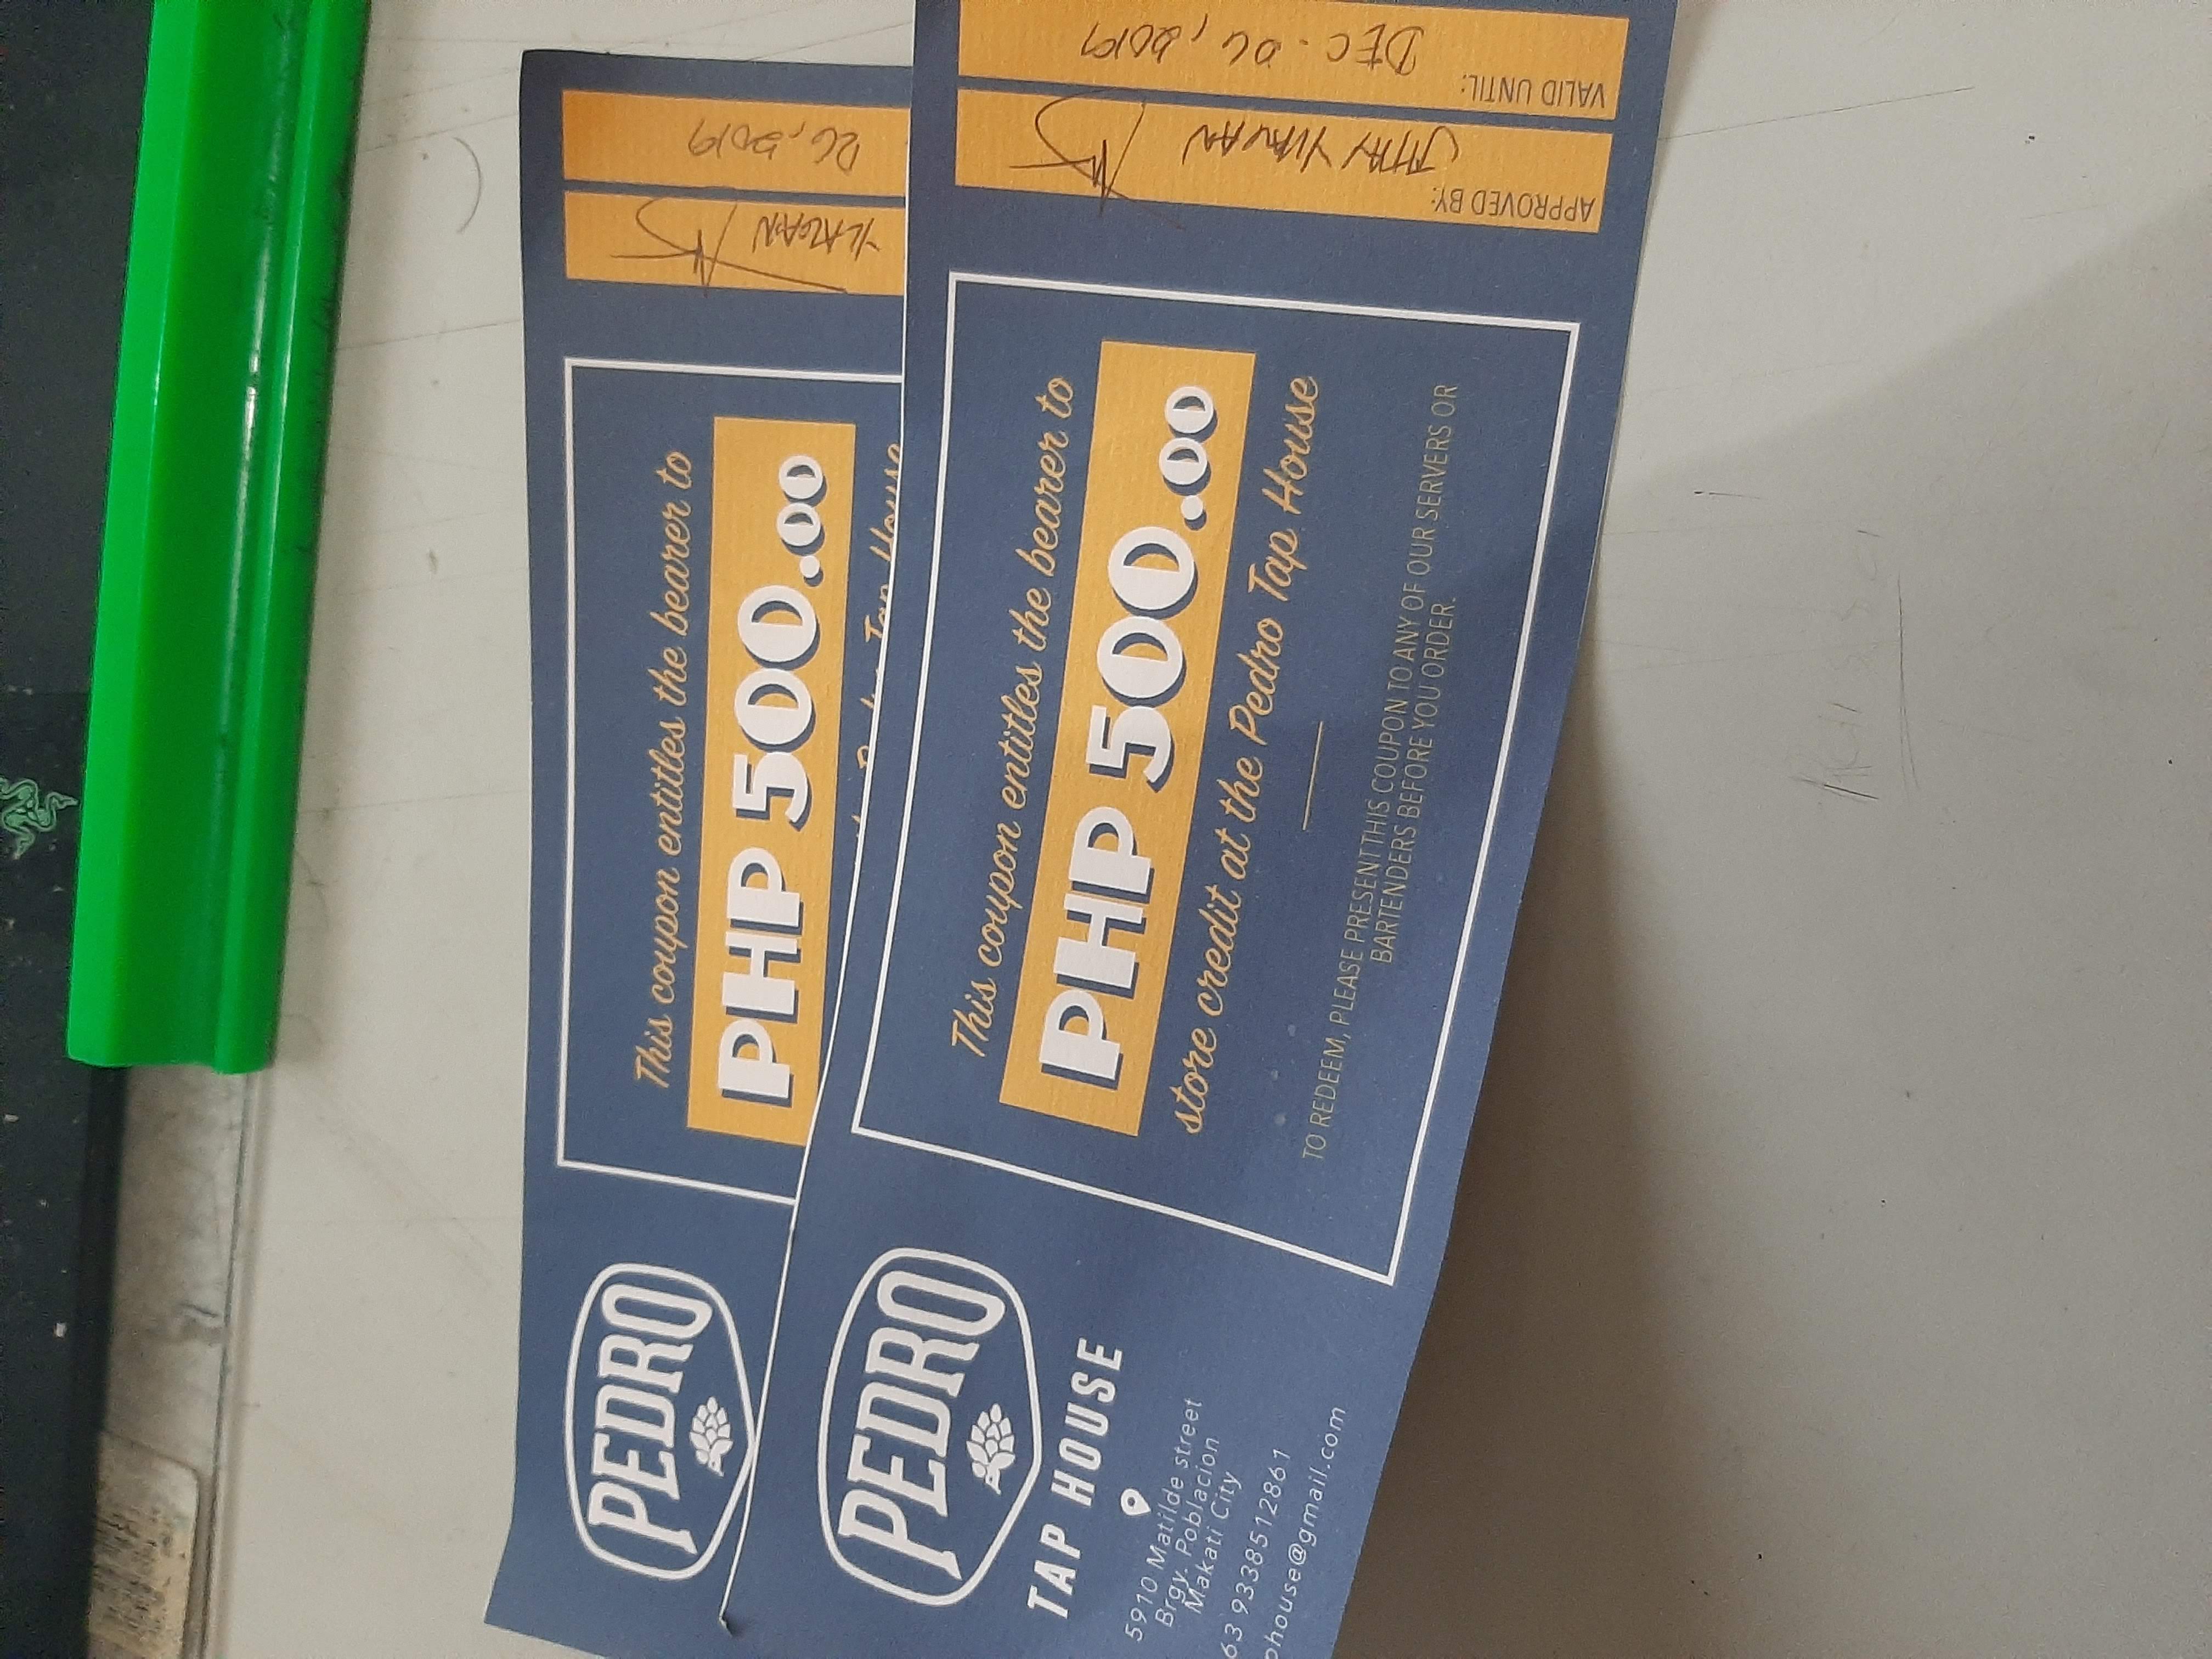 PEDRO
This coupon entitles the bearer to
PHP 500.00
Pedro Tap House
YLAGAN
26, 2019
PEDRO
TAP HOUSE
5910 Matilde street
Brgy. Poblacion
Makati City
63 9338512861
phouse@gmail.com
This coupon entitles the bearer to
PHP 500.00
store credit at the Pedro Tap House
TO REDEEM, PLEASE PRESENT THIS COUPON TO ANY OF OUR SERVERS OR
BARTENDERS BEFORE YOU ORDER.
APPROVED BY:
VALID UNTIL: DEC. 06, 2019